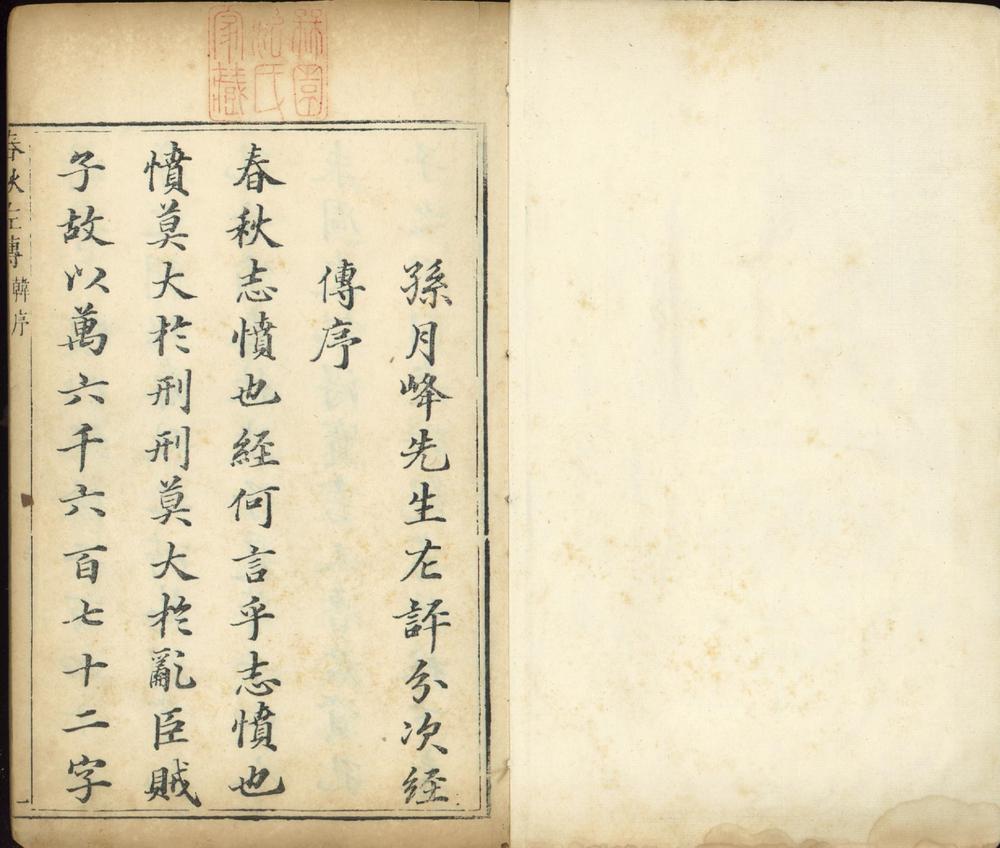 孫月峰先生左評分次経
傳序
春秋志憤也経何言乎志憤也
憤莫大扵刑刑莫大扵亂臣賊
子故以萬六千六百七十二字
春秋左傳 韓序
一
園
氏
家藏